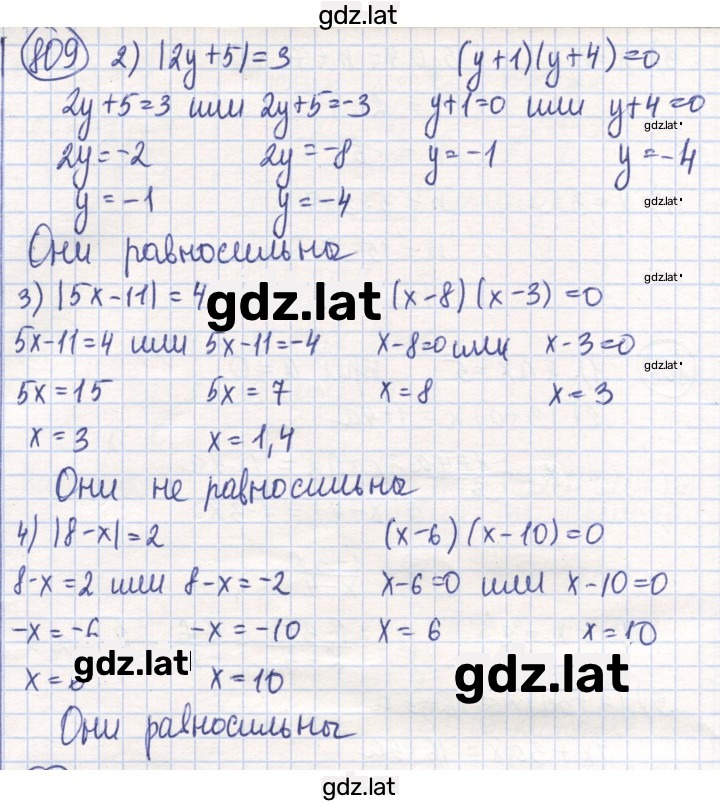 gdz.lat
809 2) |2y+5|=3 (y+1)(y+4)=0
2y+5=3 или 2y+5=-3 y+1=0 или y+4=0
gdz.lat
2y=-2 2y=-8 y=-1 y=-4
y=-1 y=-4
gdz.lat
Они равносильны
gdz.lat
3) |5x-11|=4 (x-8)(x-3)=0
gdz.lat
5x-11=4 или 5x-11=-4 x-8=0 или x-3=0
gdz.lat
5x=15 5x=7 x=8 x=3
x=3 x=1,4
Они не равносильны
4) |8-x|=2 (x-6)(x-10)=0
8-x=2 или 8-x=-2 x-6=0 или x-10=0
-x=-6 -x=-10 x=6 x=10
gdz.lat
gdz.lat
x= x=10
Они равносильны
gdz.lat